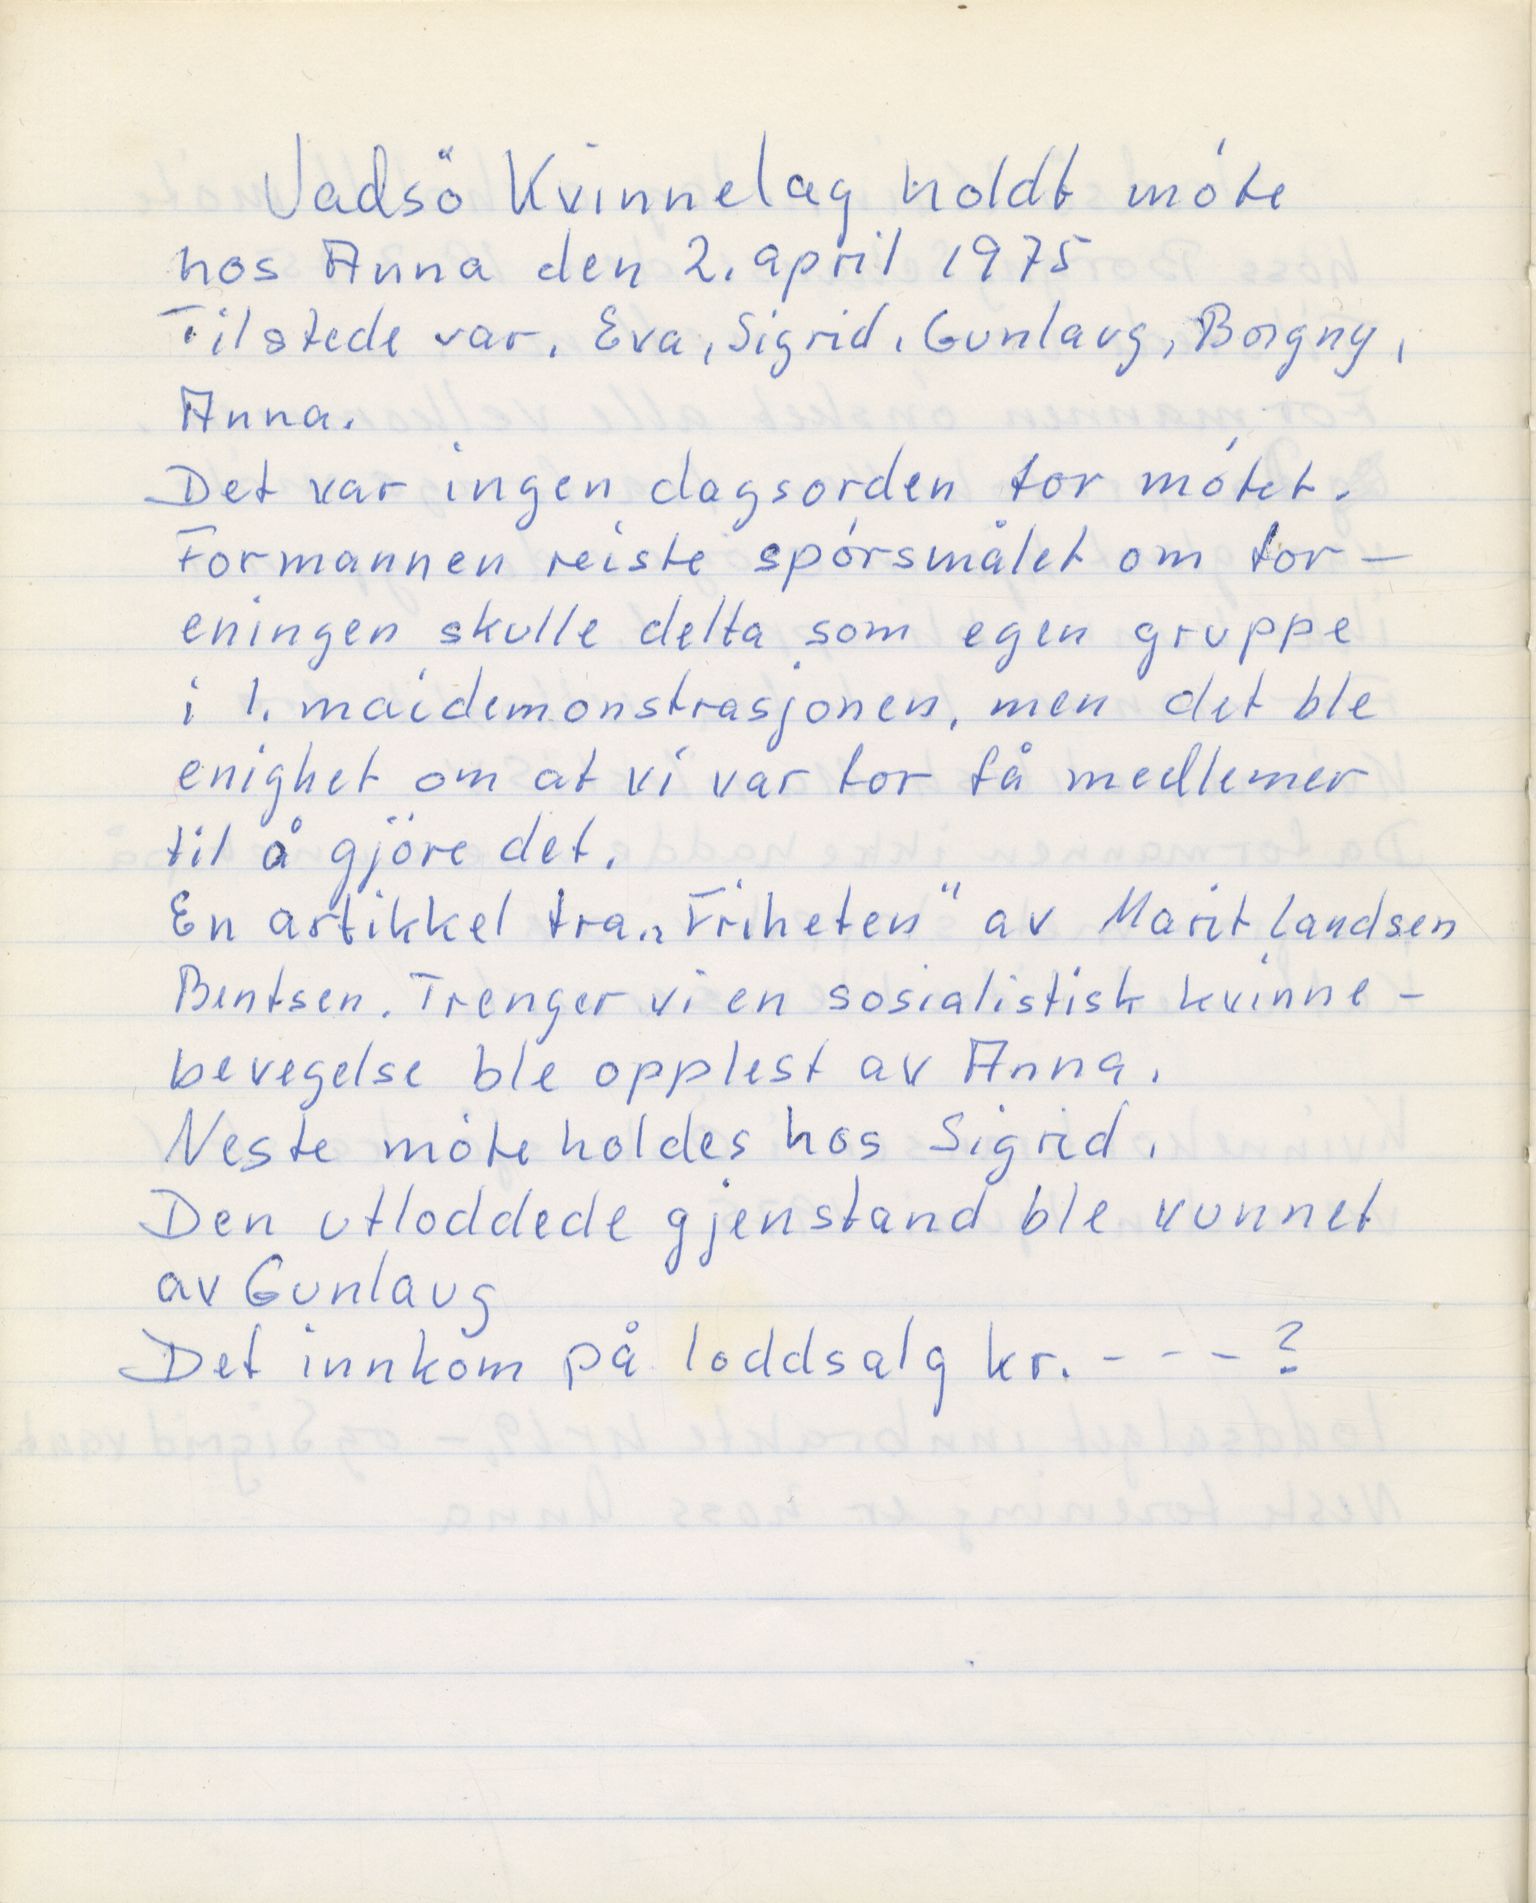 Vadsö Kvinnelag holdt móte
hos Anna den 2. april 1975
Tilstede var. Eva, Sigrid, Gunlaug, Borgny,
Anna.
Det var ingen dagsorden for mótet.
Formannen reiste spórsmålet om for-
eningen skulle delta som egen gruppe
i 1. maidemonstrasjonen, men det ble
enighet om at vi var for få medlemer
til å gjöre det.
En artikkel fra „Friheten" av Marit Landsen
Bentsen. Trenger vi en sosialistisk kvinne-
bevegelse ble opplest av Anna.
Neste móte holdes hos Sigrid.
Den utloddede gjenstand ble vunnet
av Gunlaug
Det innkom på loddsalg kr. - - - ?